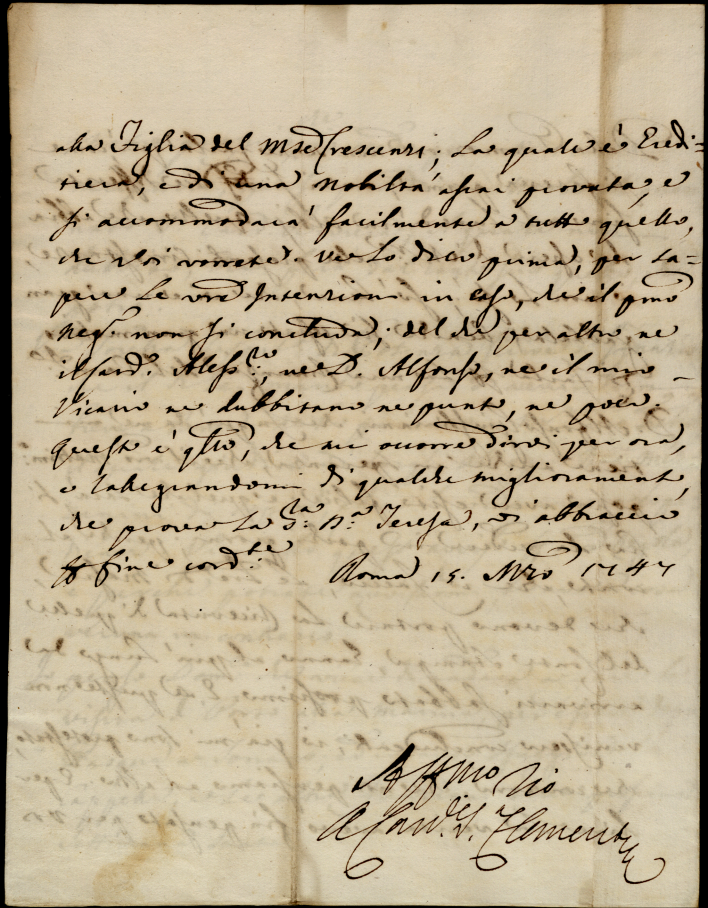 alla Figlia del Mse Crescenzi; La quale è Eredi=
tiera, e di una nobiltà assai provata, e
si accommodarà facilmente a tutto quello,
che Voi vorrete. Ve lo dico prima, per sa=
pere le vre Intenzioni in caso, che il pmo
neg.o non si concluda; del che per altro ne
il Card. Aless.ro, ne D. Alfonso, ne il mio
Vicario ne dubbitano ne punto, ne poco.
Questo è qto, che mi occorre dirvi per ora,
e rallegrandomi di qualche miglioramento,
che prova la S.ra D.a Teresa, vi abbraccio
per fine cord.te Roma 15. Mzo 1747
Affmo Zio
A Card. di S. Clemente